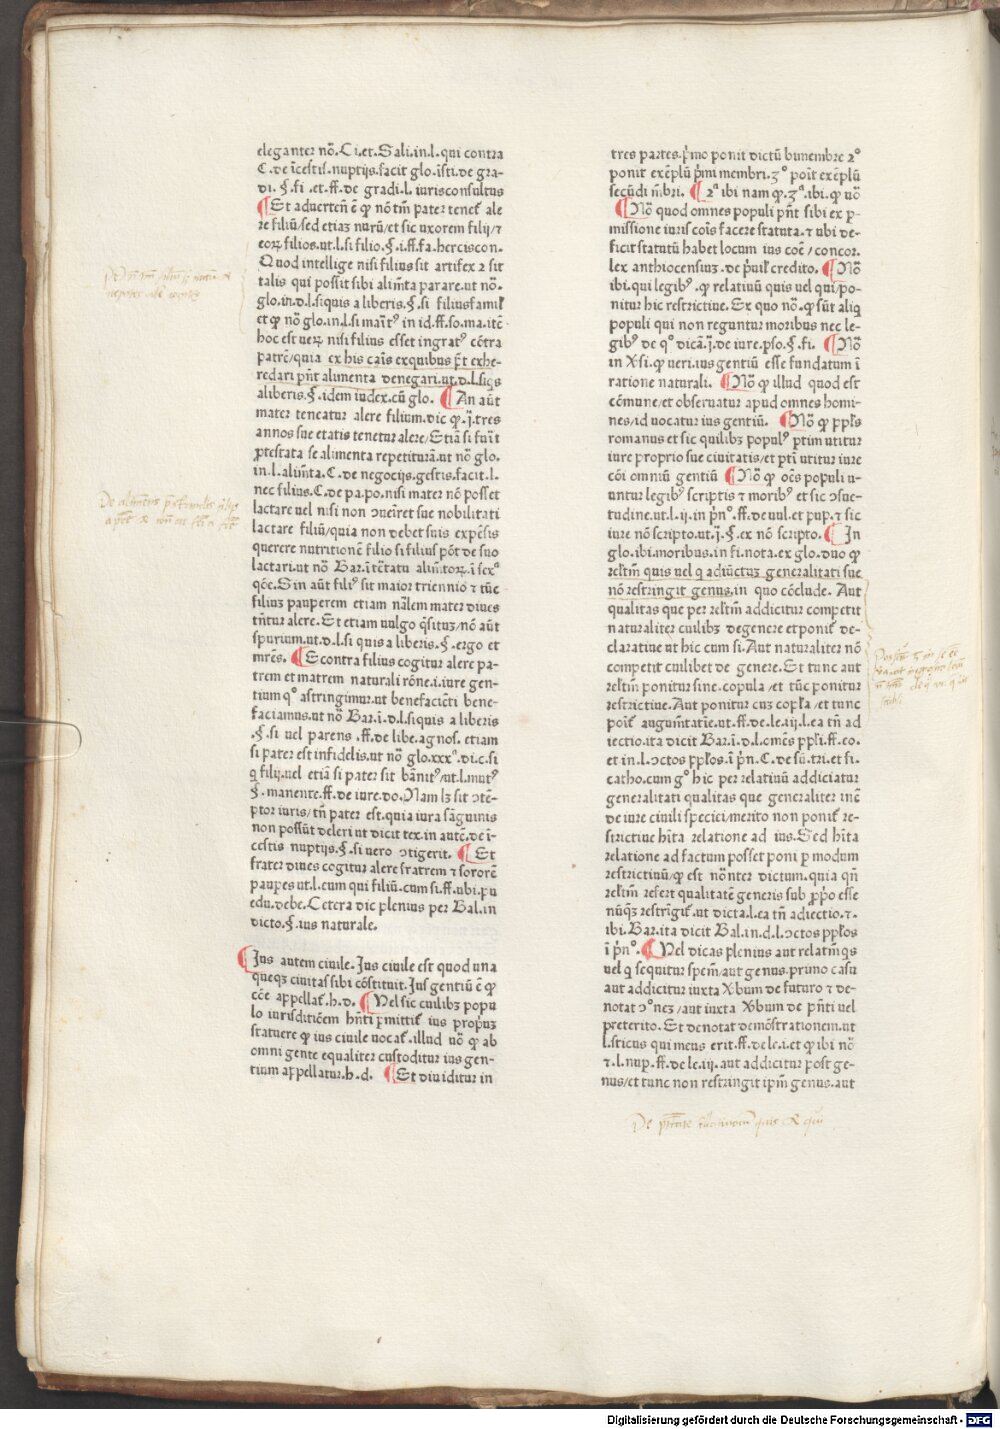 eleganter nō.Ci.et.Sali.in.l.qui contra
C.de īcestis.nuptijs.facit glo.īsti.de gra-
di.§.fi.et.ff.de gradi.l.iurisconsultus
¶Et aduertenē ē ꝙ nō tm̄ pater tenet̄ ale
re filiū/sed etiaꝫ nurū/et sic uxorem filij/⁊
eoꝝ filios.ut.l.si filio.§.i.ff.fa.herciscon.
Quod intellige nisi filius sit artifex ⁊ sit
talis qui possit sibi alim̄ta parare.ut nō.
glo.in.d.l.siquis a liberis.§.si filiusfamil̄
et ꝙ nō glo.in.l.si marīt⁹ in id.ff.so.ma.itē
hoc est ueꝝ nisi filius esset ingrat⁹ cōtra
patrē/quia ex his cāis exquibus pn̄t exhe-
redari pn̄t alimenta denegari.ut.d.l.siqs
aliberis.§.idem iudex.cū glo. ¶An aūt
mater teneatur alere filium.dic ꝙ.īj.tres
annos sue etatis tenetur alere/Etiā si fuīt
ꝓtestata se alimenta repetiturā.ut nō glo.
in.l.alim̄ta.C.de negocijs.gestis.facit.l.
nec filius.C.de pa.po.nisi mater nō posset
lactare uel nisi non ↄueīret sue nobilitati
lactare filiū/quia non debet suis expēsis
querere nutritionē filio si filius pōt de suo
lactari.ut nō Bar.ī tētatu alim̄toꝝ.ī sexᵃ
qōe.Sin aūt fili⁹ sit maior triennio ⁊ tūc
filius pauperem etiam nālem mater diues
tn̄tur alere.Et etiam uulgo q̄situꝫ/nō aūt
spurium.ut.d.l.si quis a liberis.§.ergo et
mrēs. ¶Econtra filius cogitur alere pa-
trem et matrem naturali rōne.i.iure gen-
tium qº astringimur.ut benefacicti bene-
faciamus.ut nō Bar.ī.d.l.siquis a liberis
.§.si uel parens.ff.de libe.agnos.etiam
si pater est infidelis.ut nō glo.xxxᵃ.di.c.si
q̄ filij.uel etiā si pater sit bānit⁹/ut.l.mut⁹
§.manente.ff.de iure.do.Nam lꝫ sit ↄtē-
ptor iuris/tn̄ pater est.quia iura sāguinis
non possūt deleri ut dicit tex.in autē.de ī-
cestis nuptijs.§.si uero ↄtigerit. ¶Et
frater diues cogitur alere fratrem ⁊ sororē
pauꝑes ut.l.cum qui filiū.cum si.ff.ubi.pu
edu.debe.Cetera dic plenius per Bal.in
dicto.§.ius naturale.
¶Jus autem ciuile.Jus ciuile est quod una
queqꝫ ciuitas sibi cōstituit.Jus gentiū ē ꝙ
cōe appellat̄.h.d. ¶Uel sic cuilibꝫ popu
lo iurisditiōem hn̄ti ꝑmittit̄ ius propuꝫ
statuere ꝙ ius ciuile uocat̄.illud uō ꝙ ab
omni gente equaliter custoditur ius gen-
tium appellatur.h.d. ¶Et diuiditur in
tres partes.p̄mo ponit dictū bimembre ⁊º
ponit exēplū p̄mi membri.ꝫº poīt exēplū
secūdi m̄bri. ¶2ᵃ ibi nam ꝙ.3ᵃ.ibi.ꝙ uō
¶Nō quod omnes populi pn̄t sibi ex ꝑ-
missione iuris cōis facere statuta.⁊ ubi de-
ficit statutū habet locum ius coē/concor.
lex anthiocensiuꝫ.de p̄uil̄ credito. ¶Nō
ibi.qui legib⁹.ꝙ relatiuū quis uel qui/po-
nitur hic restrictiue.Ex quo nō.ꝙ sūt aliq̄
populi qui non reguntur moribus nec le-
gib⁹ de qº dicā.īj.de iure.ꝑso.§.fi. ¶Nō
in Xsi.ꝙ ueri.ius gentiū esse fundatum ī
ratione naturali. ¶Nō ꝙ illud quod est
cōmune/et obseruatur apud omnes homi-
nes/id uocatur ius gentiū. ¶Nō ꝙ ppl̄s
romanus et sic quilibꝫ popul⁹ ꝑtim utitur
iure proprio sue ciuitatis/et ꝑtī utitur iure
cōi omniū gentiū ¶Nō ꝙ oēs populi u-
untur legib⁹ scriptis ⁊ morib⁹ et sic ↄsue-
tudine.ut.l.ij.in pn̄º.ff.de uul.et pup.⁊ sic
iure nō scripto.ut.īj.§.ex nō scripto. ¶In
glo.ibi.moribus.in fi.nota.ex glo.duo ꝙ
relm̄ quis uel q̄ adiūctuꝫ generalitati sue
nō restringit genus.in quo cōclude. Aut
qualitas que per relm̄ addicitur competit
naturaliter cuilibꝫ degenere et ponit̄ de-
claratiue ut hic cum si.Aut naturaliter nō
competit cuilibet de genere.Et tunc aut
relm̄ ponitur sine.copula/et tūc ponitur
restrictiue.Aut ponitur cuꝫ copl̄a/et tunc
poit̄ augum̄tatīe.ut.ff.de.le.iij.l.ea tn̄ ad
iectio.ita dicit Bar.ī.d.l.omēs ppl̄i.ff.eo.
et in.l.ↄctos ppl̄os.ī pn̄.C.de sū.tri.et fi.
catho.cum gº hic per relatiuū addiciatur
generalitati qualitas que generaliter inē
de iure ciuili speciei/merito non ponit̄ re-
strictiue hīta relatione ad ius.Sed hīta
relatione ad factum posset poni ꝑ modum
restrictiuū/ꝙ est nō nter dictum.quia qn̄
relm̄ refert qualitatē generis sub ꝓp̄o esse
nūq̄ꝫ restrīgit̄.ut dicta.l.ea tn̄ adiectio.⁊.
ibi.Bar.ita dicit Bal.in.d.l.ↄctos ppl̄os
ī pn̄º. ¶Uel dicas plenius aut relatm̄ qs
uel q̄ sequitur spem̄/aut genus.primo casu
aut addicitur iuxta Xbum de futuro ⁊ de-
notat ↄºneꝫ/aut iuxta Xbum de pn̄ti uel
preterito.Et denotat demōstrationem.ut
l.sticus qui meus erit.ff.de le.i.et ꝙ ibi nō
⁊.l.nup.ff.de le.iij.aut addicitur post ge-
nus/et tunc non restringit ipm̄ genus.aut
Digitalisierung gefördert durch die Deutsche Forschungsgemeinschaft - DFG